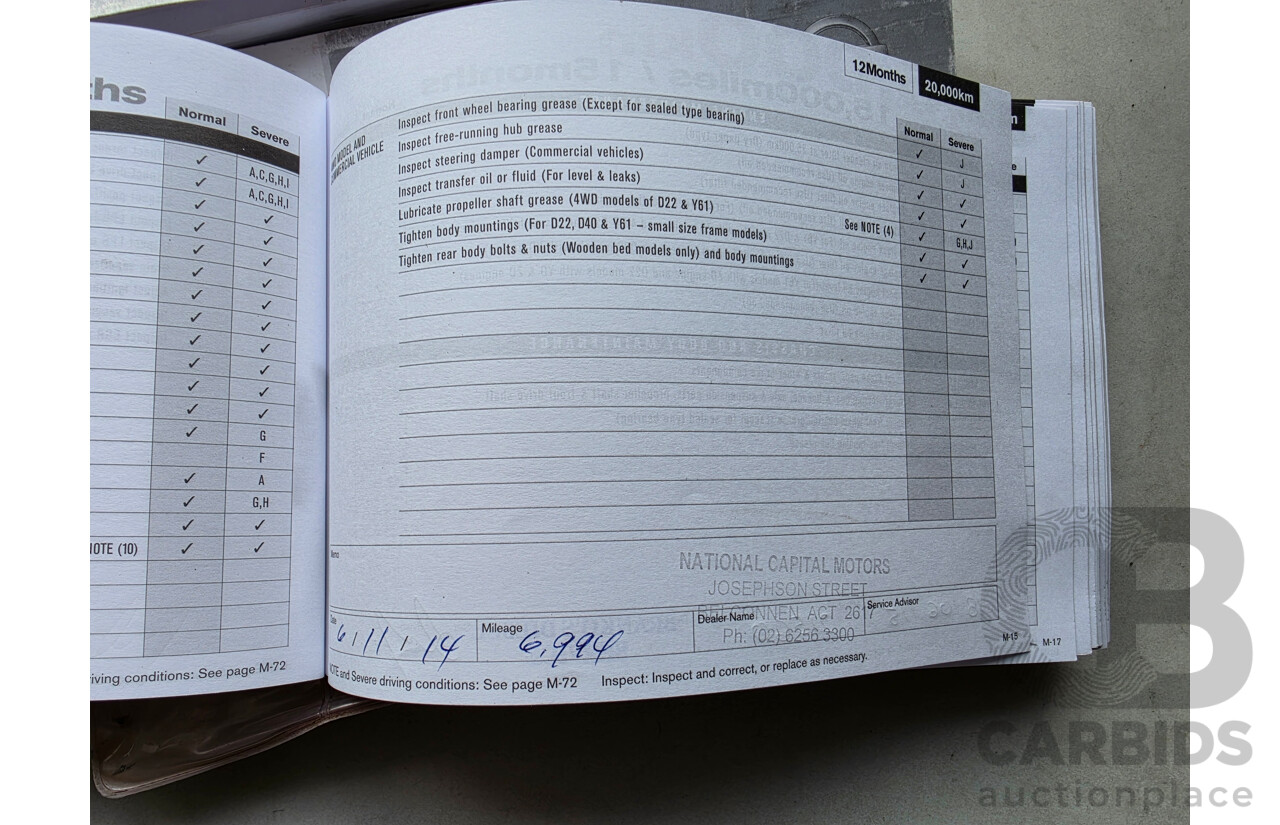 ths
Normal
Severe
✓ A,C,G,H,I
✓ A,C,G,H,I
✓ ✓
✓ ✓
✓ ✓
✓ ✓
✓ ✓
✓ ✓
✓ ✓
✓ ✓
✓ ✓
✓ ✓
✓ G
F
✓ A
✓ G,H
✓ ✓
NOTE (10) ✓ ✓
iving conditions: See page M-72
12Months
20,000km
Normal
Severe
MODEL AND
COMMERCIAL VEHICLE
Inspect front wheel bearing grease (Except for sealed type bearing) ✓ J
Inspect free-running hub grease ✓ J
Inspect steering damper (Commercial vehicles) ✓ ✓
Inspect transfer oil or fluid (For level & leaks) ✓ ✓
Lubricate propeller shaft grease (4WD models of D22 & Y61) See NOTE (4) ✓ G,H,J
Tighten body mountings (For D22, D40 & Y61 – small size frame models) ✓ ✓
Tighten rear body bolts & nuts (Wooden bed models only) and body mountings ✓ ✓
Memo
NATIONAL CAPITAL MOTORS
JOSEPHSON STREET
BELCONNEN ACT 2617
Ph: (02) 6256 3300
Date
6/11/14
Mileage
6,994
Dealer Name
Service Advisor
NOTE and Severe driving conditions: See page M-72
Inspect: Inspect and correct, or replace as necessary.
M-15
M-17
CARBIDS
auctionplace